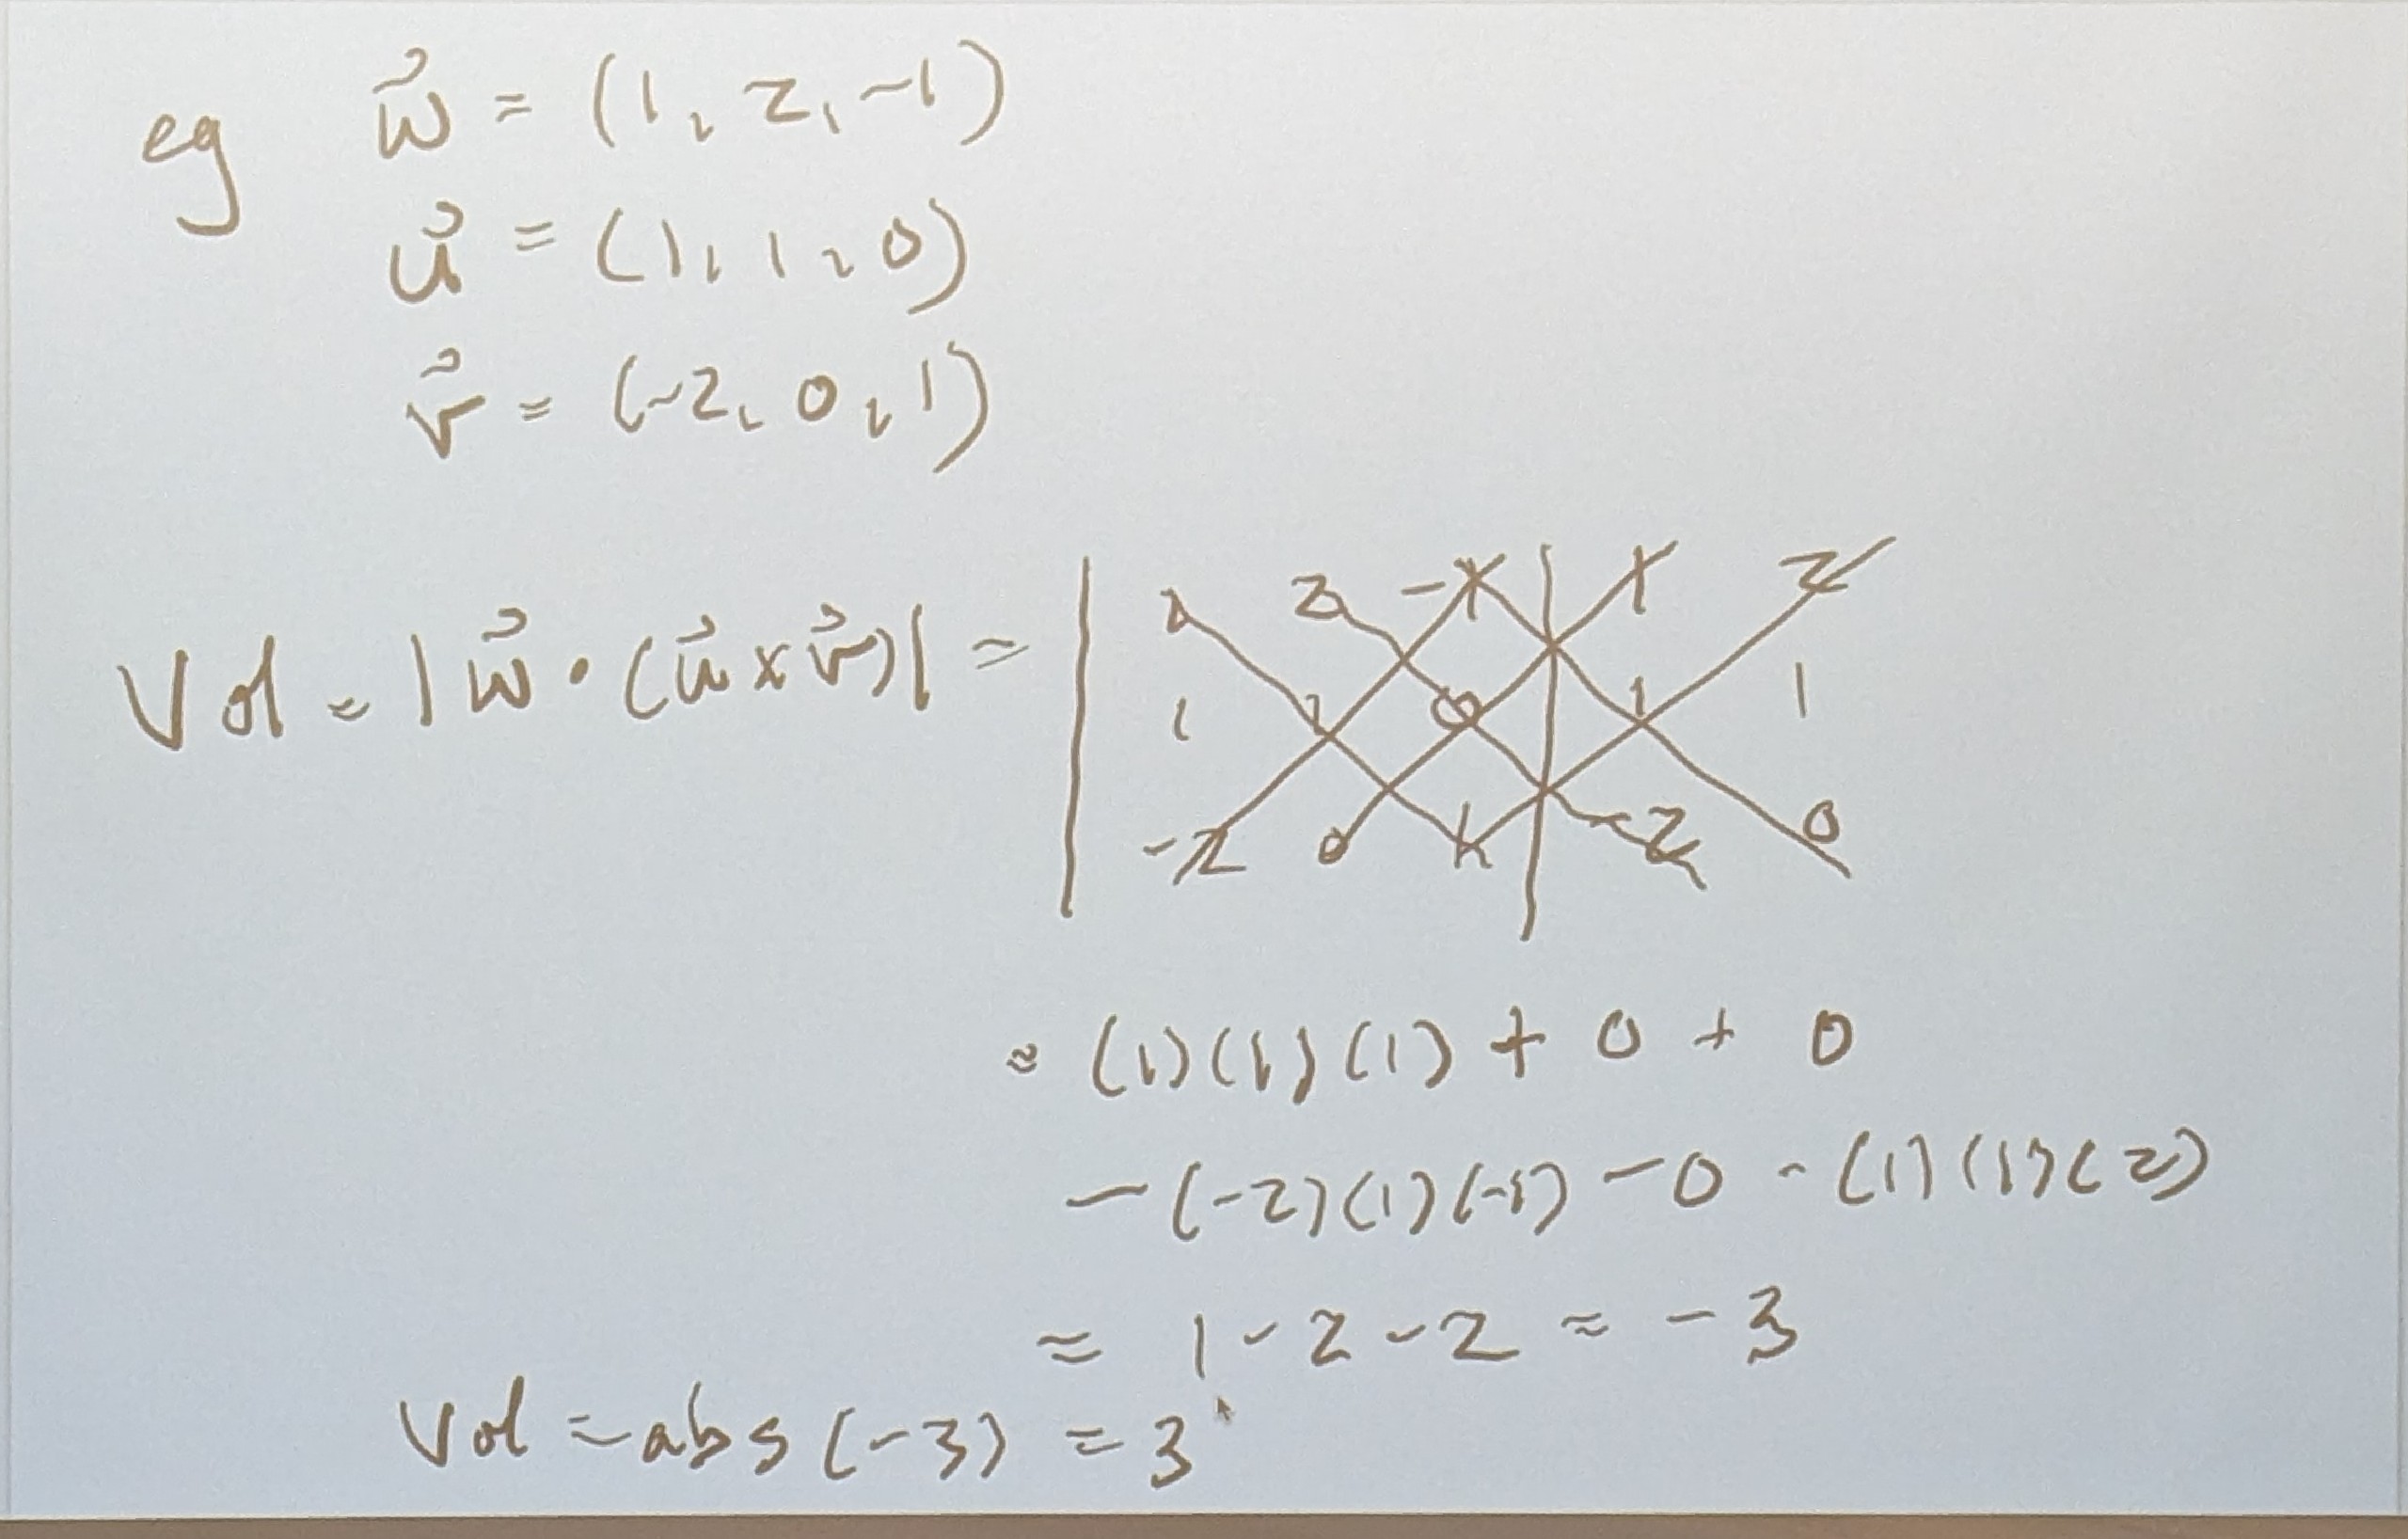 eg w⃗ = (1, 2, -1)
u⃗ = (1, 1, 0)
v⃗ = (-2, 0, 1)
Vol = |w⃗ • (u⃗ x v⃗)| = | 1 2 -1 | 1 2
1 1 0 | 1 1
-2 0 1 | -2 0
= (1)(1)(1) + 0 + 0
- (-2)(1)(-1) - 0 - (1)(1)(2)
= 1 - 2 - 2 = -3
Vol = abs(-3) = 3